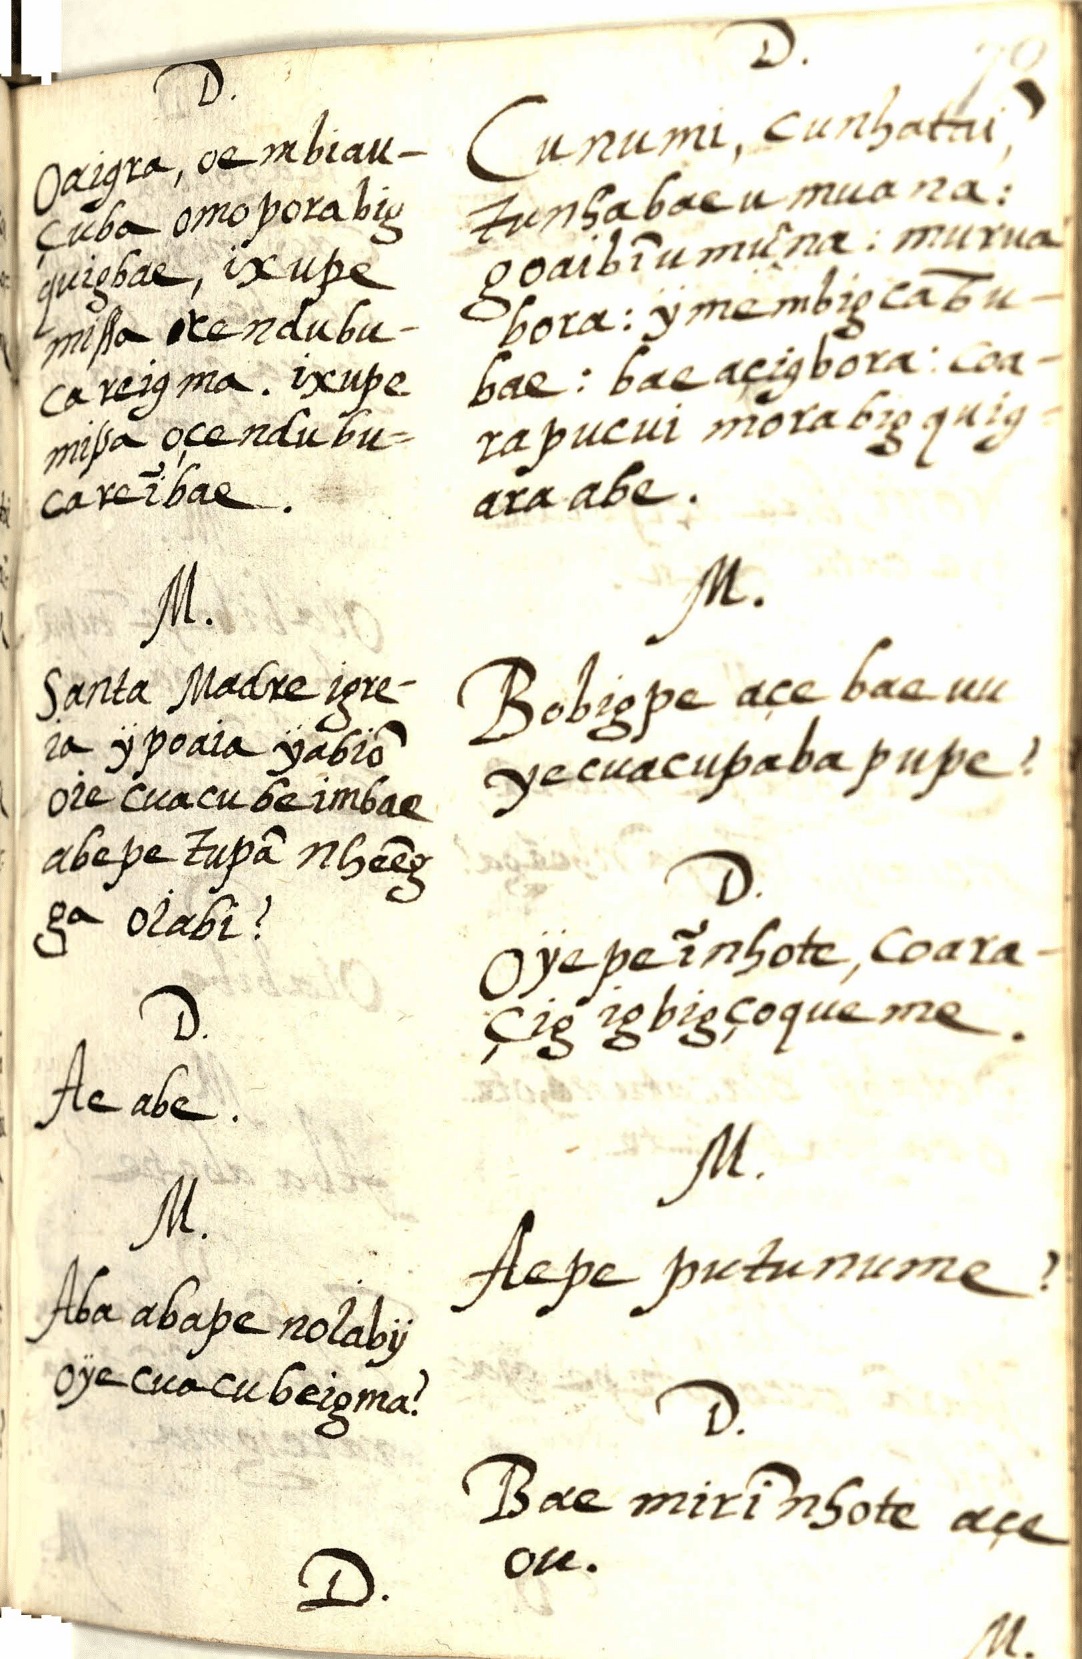 D.
Oaigra, oe mbiau-
çuba omoporabig
quigbae, ixupe
missa xendubu-
careigma. ixupe
missa oçendubu-
careĩbae.
M.
Santa Madre igre-
ia ÿpoaia ÿabiõ
oie cuacubeimbae
abepe tupã nheẽg
ga oiabi?
D.
Ae abe.
M.
Aba abape noiabÿ
oÿecuacubeigma?
D.
D.
70
Cunumi, cunhataĩ,
tunhabaeumuana:
goaibĩumũna: murua
bora: ÿmembigcabu-
bae: baeaçigbora: coa-
rapucui morabigquig-
ara abe.
M.
Bobigpe açe bae uu
yecuacupaba pupe?
D.
Oÿepeĩnhote, coara-
çig igbigçoqueme.
M.
Aepe putunume?
D.
Bae mirĩnhote açe
ou.
M.